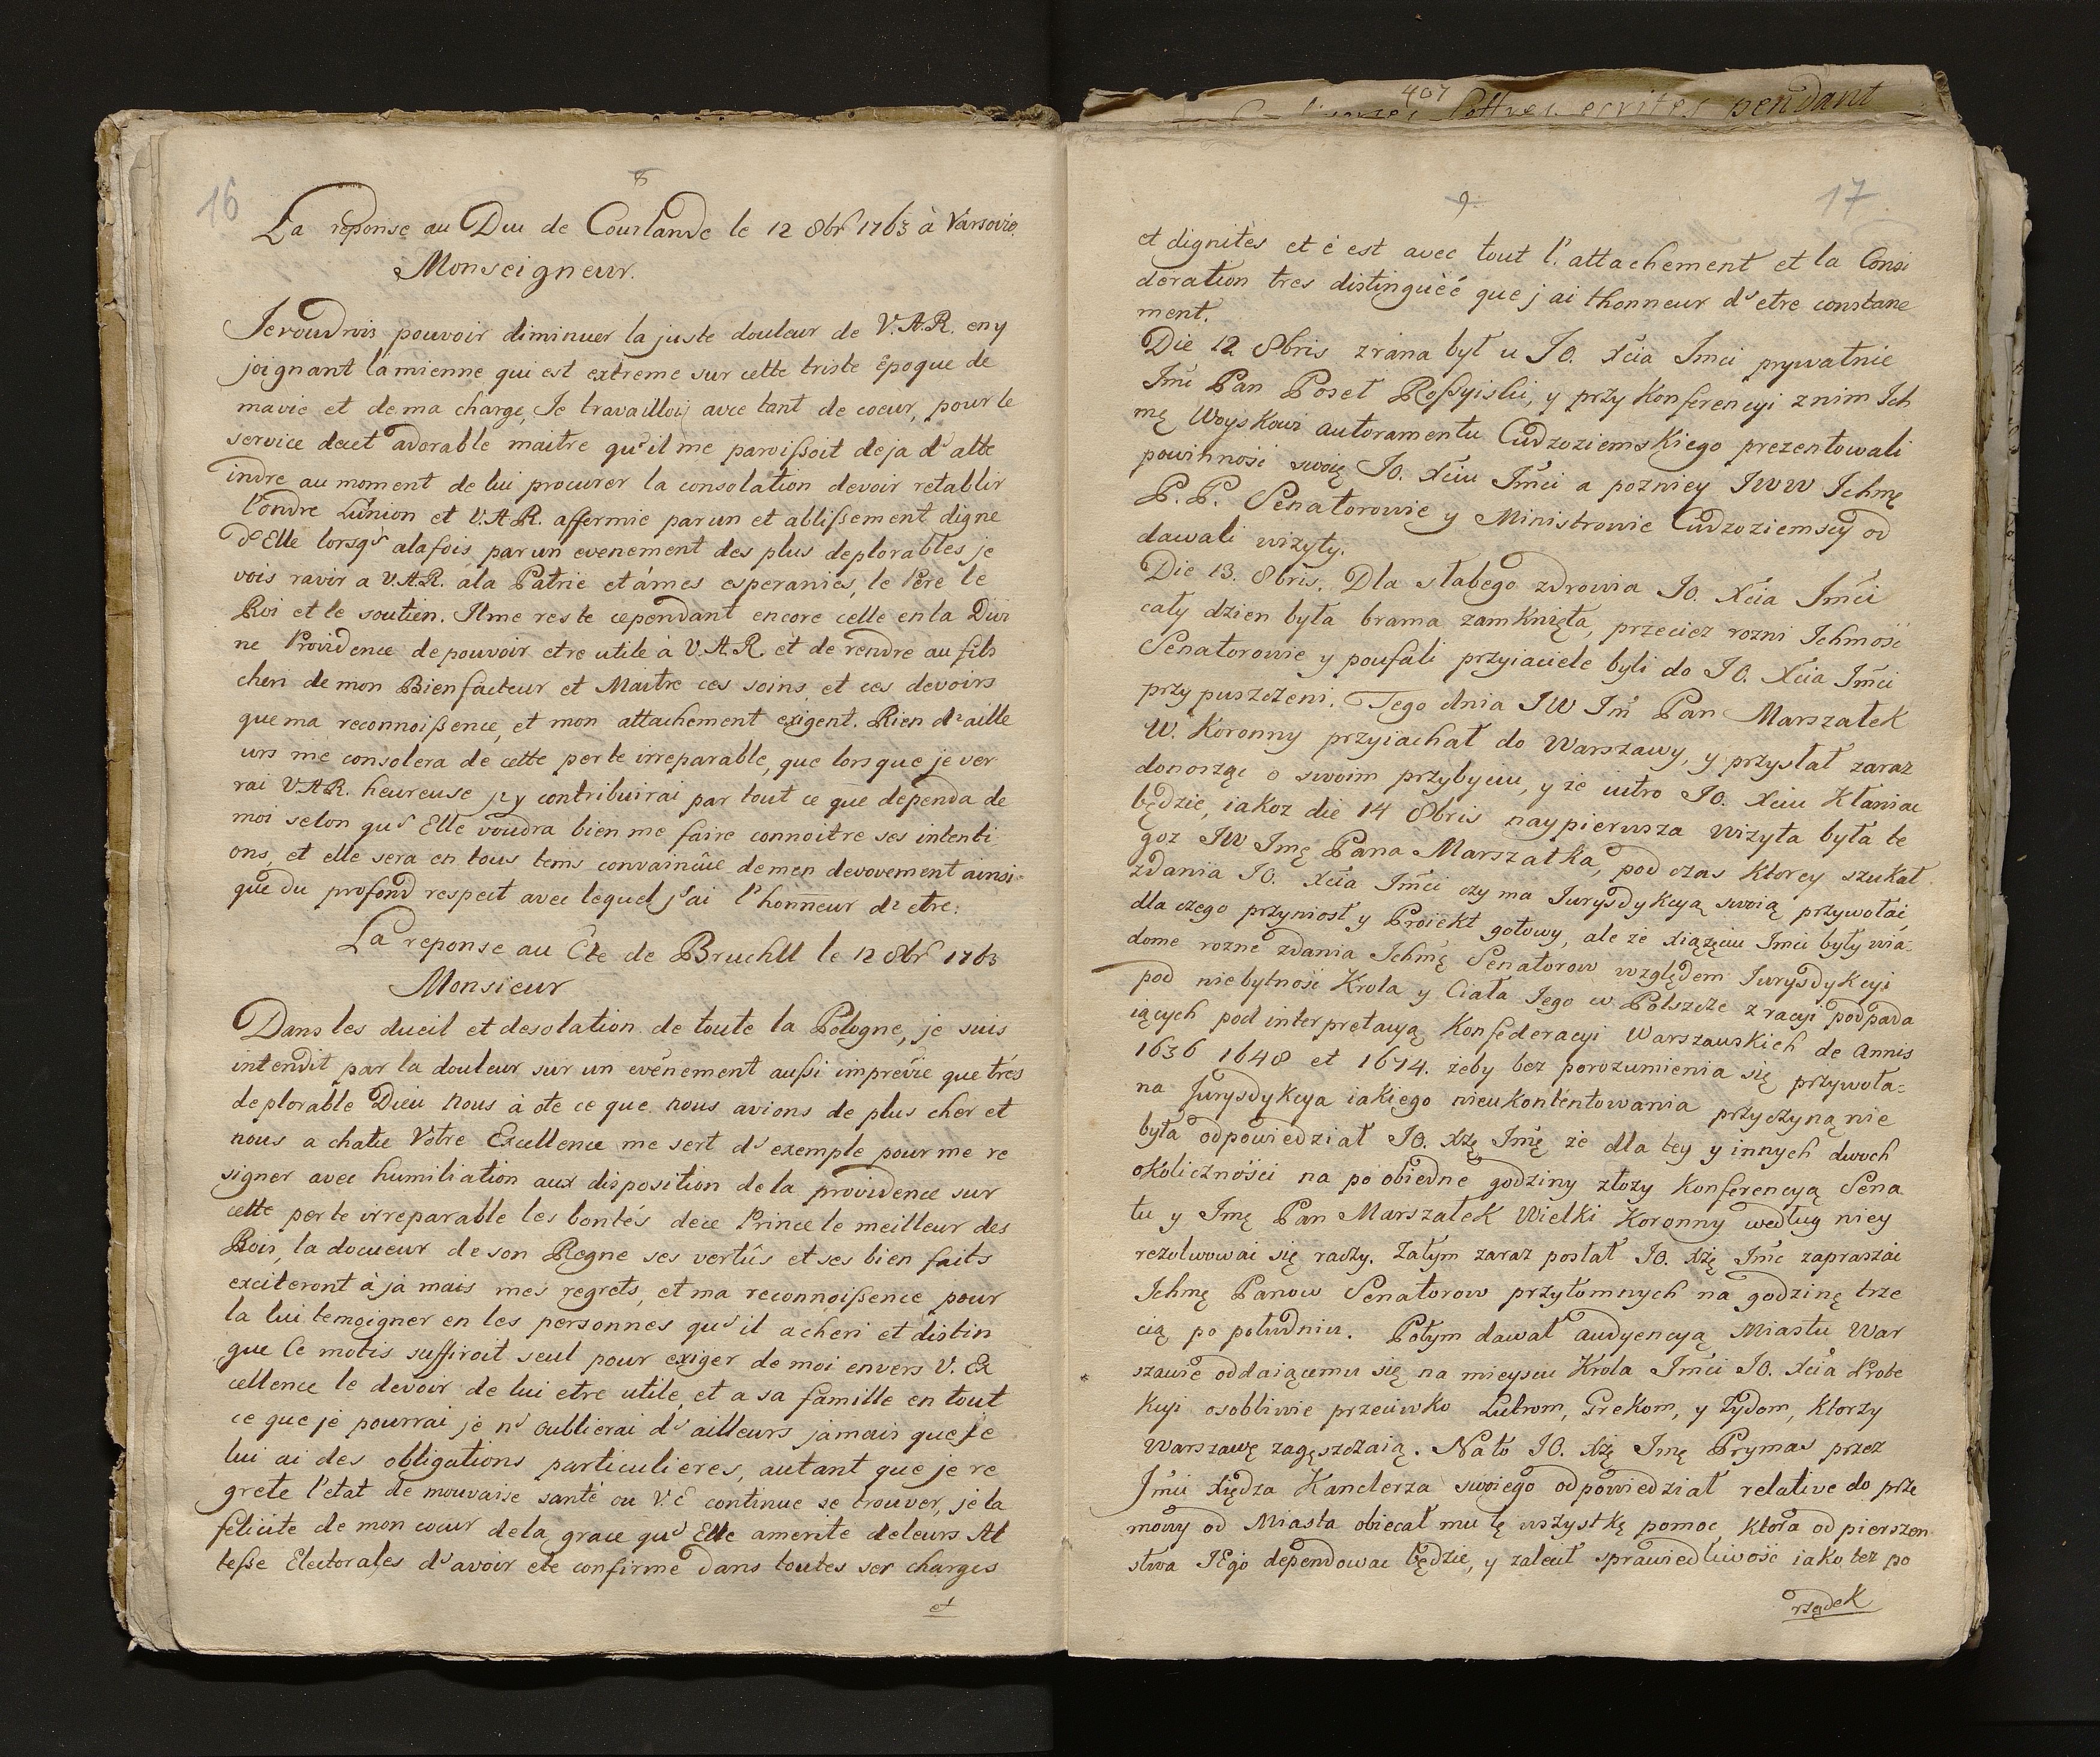 16
8
La reponse au Duc de Courlande le 12 8br 1763 à Varsovie.
Monseigneur.
Je voudrois pouvoir diminuer la juste douleur de V.A.R. en y
joignant la mienne qui est extreme sur cette triste époque de
ma vie et de ma charge, Je travaillois avec tant de coeur, pour le
service de cet adorable maitre qu'il me paroißoit deja d'atte
indre au moment de lui procurer la consolation devoir retablir
l'ondre Lunion et V.A.R. affermie par un et ablißement digne
d'Elle lorsqs alafois, par un evenement des plus deplorables je
vois ravir a V.A.R. àla Patrie et àmes esperanies, le Pere le
Roi et le soutien. Il me reste cependant encore celle en la Divi
ne Providence de pouvoir etre utile à V.A.R. et de rendre au fils
cheri de mon Bienfacteur et Maitre ces soins et ces devoirs
que ma reconnoißence, et mon attachement exigent. Rien d'aille
urs me consolera de cette perte irreparable, que lors que je ver
rai V.A.R. heureuse j'y contribuirai par tout ce que dependa de
moi selon qu'Elle voudra bien me faire connoitre ses intenti
ons, et elle sera en tous tems convaincüe de men devovement ainsi
que du profond respect avec lequel j'ai l'honneur d'etre.
La reponse au Cte de Bruchll le 12 8br 1763
Monsieur
Dans les dueil et desolation de toute la Pologne, je suis
intendit par la douleur sur un evénement außi imprévie que trés
deplorable Dieu nous à ote ce que nous avions de plus cher et
nous a chatie Votre Excellence me sert d'exemple pour me re
signer avec humiliation aux disposition de la providence sur
cette perte irreparable les bontés de ce Prince le meilleur des
Rois, la doceur de son Regne ses vertûs et ses bien faits
exciteront à ja mais mes regrets, et ma reconnoißence pour
la lui temoigner en les personnes qu'il a cheri et distin
gue Ce motis suffiroit seul pour exiger de moi envers V. Ex
cellence le devoir de lui etre utile, et a sa famille en tout
ce que je pourrai je n'oublierai d'ailleurs jamais que je
lui ai des obligations particulieres, autant que je re
grete l'etat de mouvaise santé ou V.E continue se trouver, je la
felicite de mon coeur de la grace qu'Elle a merité de leurs Al
teße Electorales d'avoir ete confirmé dans toutes ser charges
et
407
lettres ecrites pendant
9.
17
et dignités et c est avec tout l'attachement et la Consi
deration tres distinguéé que j ai lhonneur d'etre constane
ment.
Die 12 8bris zrana był u JO. Xcia Imci prywatnie
Imć Pan Poseł Roßyiski, y przy Konferencyi z nim Ich
mę Woyskowi autoramentu Cudzoziemskiego prezentowali
powinnosc swoię JO. Xciu Imci a pozniey JWW Ichmę
P.P. Senatorowie y Ministrowie Cudzoziemscy od
dawali wizyty.
Die 13. 8bris. Dla słabego zdrowia JO. Xcia Imci
cały dzien była brama zamknięta, przeciez rozni Ichmość
Senatorowie y poufali przyiaciele byli do JO. Xcia Imci
przypuszczeni. Tego dnia JW Im Pan Marszałek
W. Koronny przyiachał do Warszawy, y przysłał zaraz
donosząc o swoim przybyciu, y ze iutro JO. Xciu Kłaniac
będzie, iakoz die 14 8bris naypierwsza wizyta była te
goz JW Imę Pana Marszałka, pod czas Ktorey szukał
zdania JO. Xcia Imci czy ma Jurysdykcyą swoią przywołać,
dla czego przyniosł y Proiekt gotowy, ale ze xiążęciu Imci były wia-
dome rozne zdania Ichmę Senatorow względem Jurysdykcyi
pod niebytnosc Krola y Ciała Iego w Polszcze z racyi podpada
iących pod interpretacyą Konfederacyi Warszawskich de Annis
1636 1648 et 1674. zeby bez porozumienia się przywoła=
na Jurysdykcya iakiego nieukontentowania przyczyną nie
była odpowiedział JO. Xżę Imę ze dla tey y innych dwoch
okolicznosci na po obiedne godziny złozy Konferencyą Sena
tu y Imę Pan Marszałek Wielki Koronny według niey
rezolwowai się raczy. Zatym zaraz posłał JO. Xżę Imć zapraszai
Ichmę Panow Senatorow przytomnych na godzinę trze
cią po południu. Potym dawał audyencyą Miastu War
szawie oddaiącemu się na mieyscu Krola Imci JO. Xcia Prote
kcyi osobliwie przeciwko Lutrom, Grekom, y Zydom, Ktorzy
Warszawę zagęszczaią. Na to JO. Xżę Imę Prymas przez
Imci Xiędza Kanclerza swoiego odpowiedział relative do prze
mowy od Miasta obiecał mu tę wszystkę pomoc, Ktora od pierszen
stwa JEgo dependowac będzie, y zalecił sprawiedliwośc iako tez po
rządek